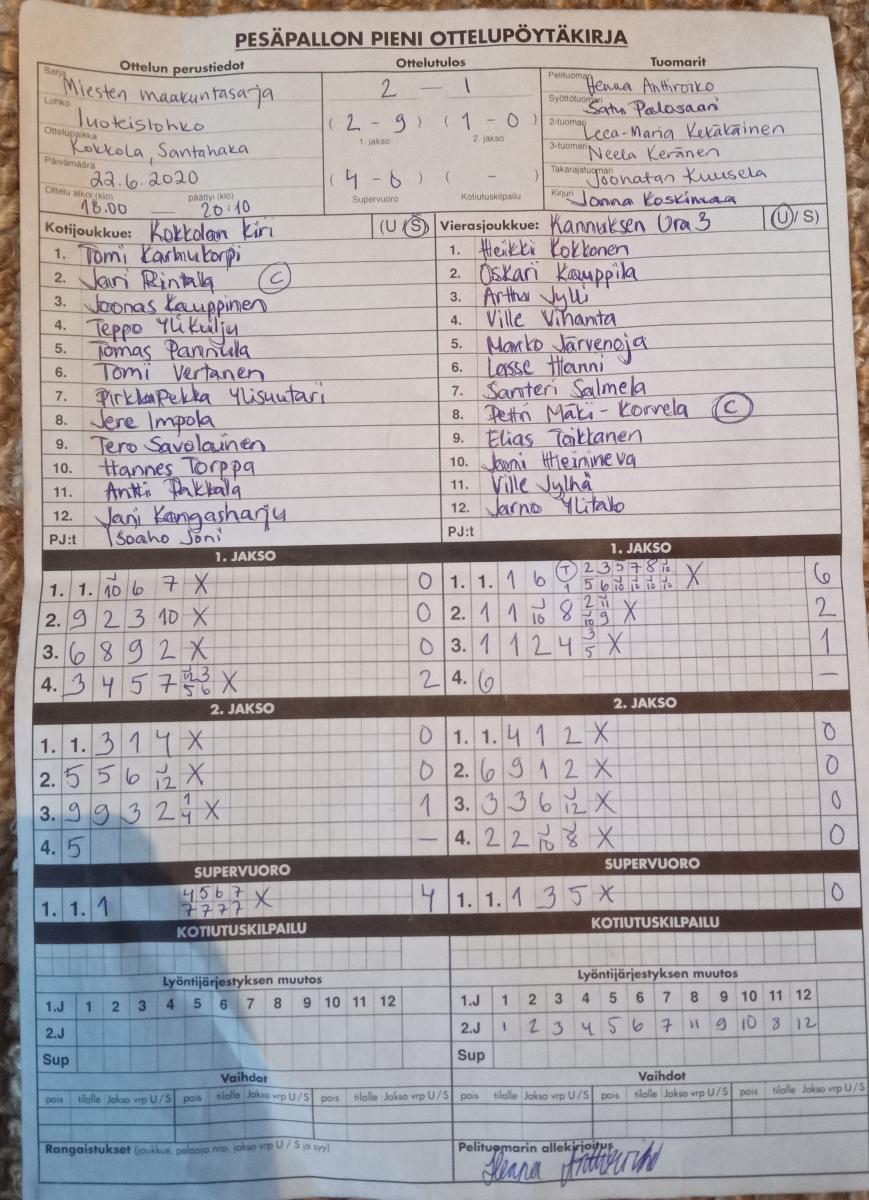 PESÄPALLON PIENI OTTELUPÖYTÄKIRJA
Ottelun perustiedot
Sarja Miesten maakuntasarja
Lohko luoteislohko
Ottelupaikka Kokkola, Santahaka
Päivämäärä 22.6.2020
Ottelu alkoi (klo) 18.00 — päättyi (klo) 20:10
Ottelutulos
2 — 1
(2-9) (1-0)
1. jakso 2. jakso
(4-0) ( - )
Supervuoro Kotiutuskilpailu
Tuomarit
Pelituomari Henna Anthroiko
Syöttötuomari Satu Palosaari
2-tuomari Leea-Maria Keräkäinen
3-tuomari Neela Keränen
Takarajatuomari Joonatan Kuusela
Kirjuri Janna Koskimaa
Kotijoukkue: Kokkolan Kiri (U/S)
1. Tomi Karhukorpi
2. Jari Rintala C
3. Joonas Kauppinen
4. Teppo Ylikulju
5. Tomas Pannula
6. Tomi Vertanen
7. Pirkkapekka Ylisuutari
8. Jere Impola
9. Tero Savolainen
10. Hannes Torppa
11. Antti Pakkala
12. Jani Kangasharju
PJ:t Isoaho Joni
Vierasjoukkue: Kannuksen Ura 3 (U/S)
1. Heikki Kokkonen
2. Oskari Kauppila
3. Arthur Jylli
4. Ville Vihanta
5. Marko Järvenoja
6. Lasse Hanni
7. Santeri Salmela
8. Petri Mäki-Korvela C
9. Elias Toikkanen
10. Jomi Heinineva
11. Ville Jylhä
12. Jarno Ylitalo
PJ:t
1. JAKSO
1. 1. J/10 6 7 X 0
2. 9 2 3 10 X 0
3. 6 8 9 2 X 0
4. 3 4 5 7 J/12 3 5 6 X 2
1. JAKSO
1. 1. 1 6 T 1 2 3 5 7 8 J/10 5 6 J/10 J/10 J/10 J/10 X 6
2. 1 1 J/10 8 2 J/11 J/10 9 X 2
3. 1 1 2 4 3/5 X 1
4. 6 —
2. JAKSO
1. 1. 3 1 4 X 0
2. 5 5 6 J/12 X 0
3. 9 9 3 2 1/4 X 1
4. 5 —
2. JAKSO
1. 1. 4 1 2 X 0
2. 6 9 1 2 X 0
3. 3 3 6 J/12 X 0
4. 2 2 J/10 J/8 X 0
SUPERVUORO
1. 1. 1 4 5 6 7 7 7 7 7 X 4
SUPERVUORO
1. 1. 1 3 5 X 0
KOTIUTUSKILPAILU
KOTIUTUSKILPAILU
Lyöntijärjestyksen muutos
1.J 1 2 3 4 5 6 7 8 9 10 11 12
2.J
Sup
Lyöntijärjestyksen muutos
1.J 1 2 3 4 5 6 7 8 9 10 11 12
2.J 1 2 3 4 5 6 7 11 9 10 8 12
Sup
Vaihdot
pois tilalle Jakso vrp U/S pois tilalle Jakso vrp U/S pois tilalle Jakso vrp U/S
Vaihdot
pois tilalle Jakso vrp U/S pois tilalle Jakso vrp U/S pois tilalle Jakso vrp U/S
Rangaistukset (joukkue, pelaaja nro, jakso vrp U / S ja syy)
Pelituomarin allekirjoitus